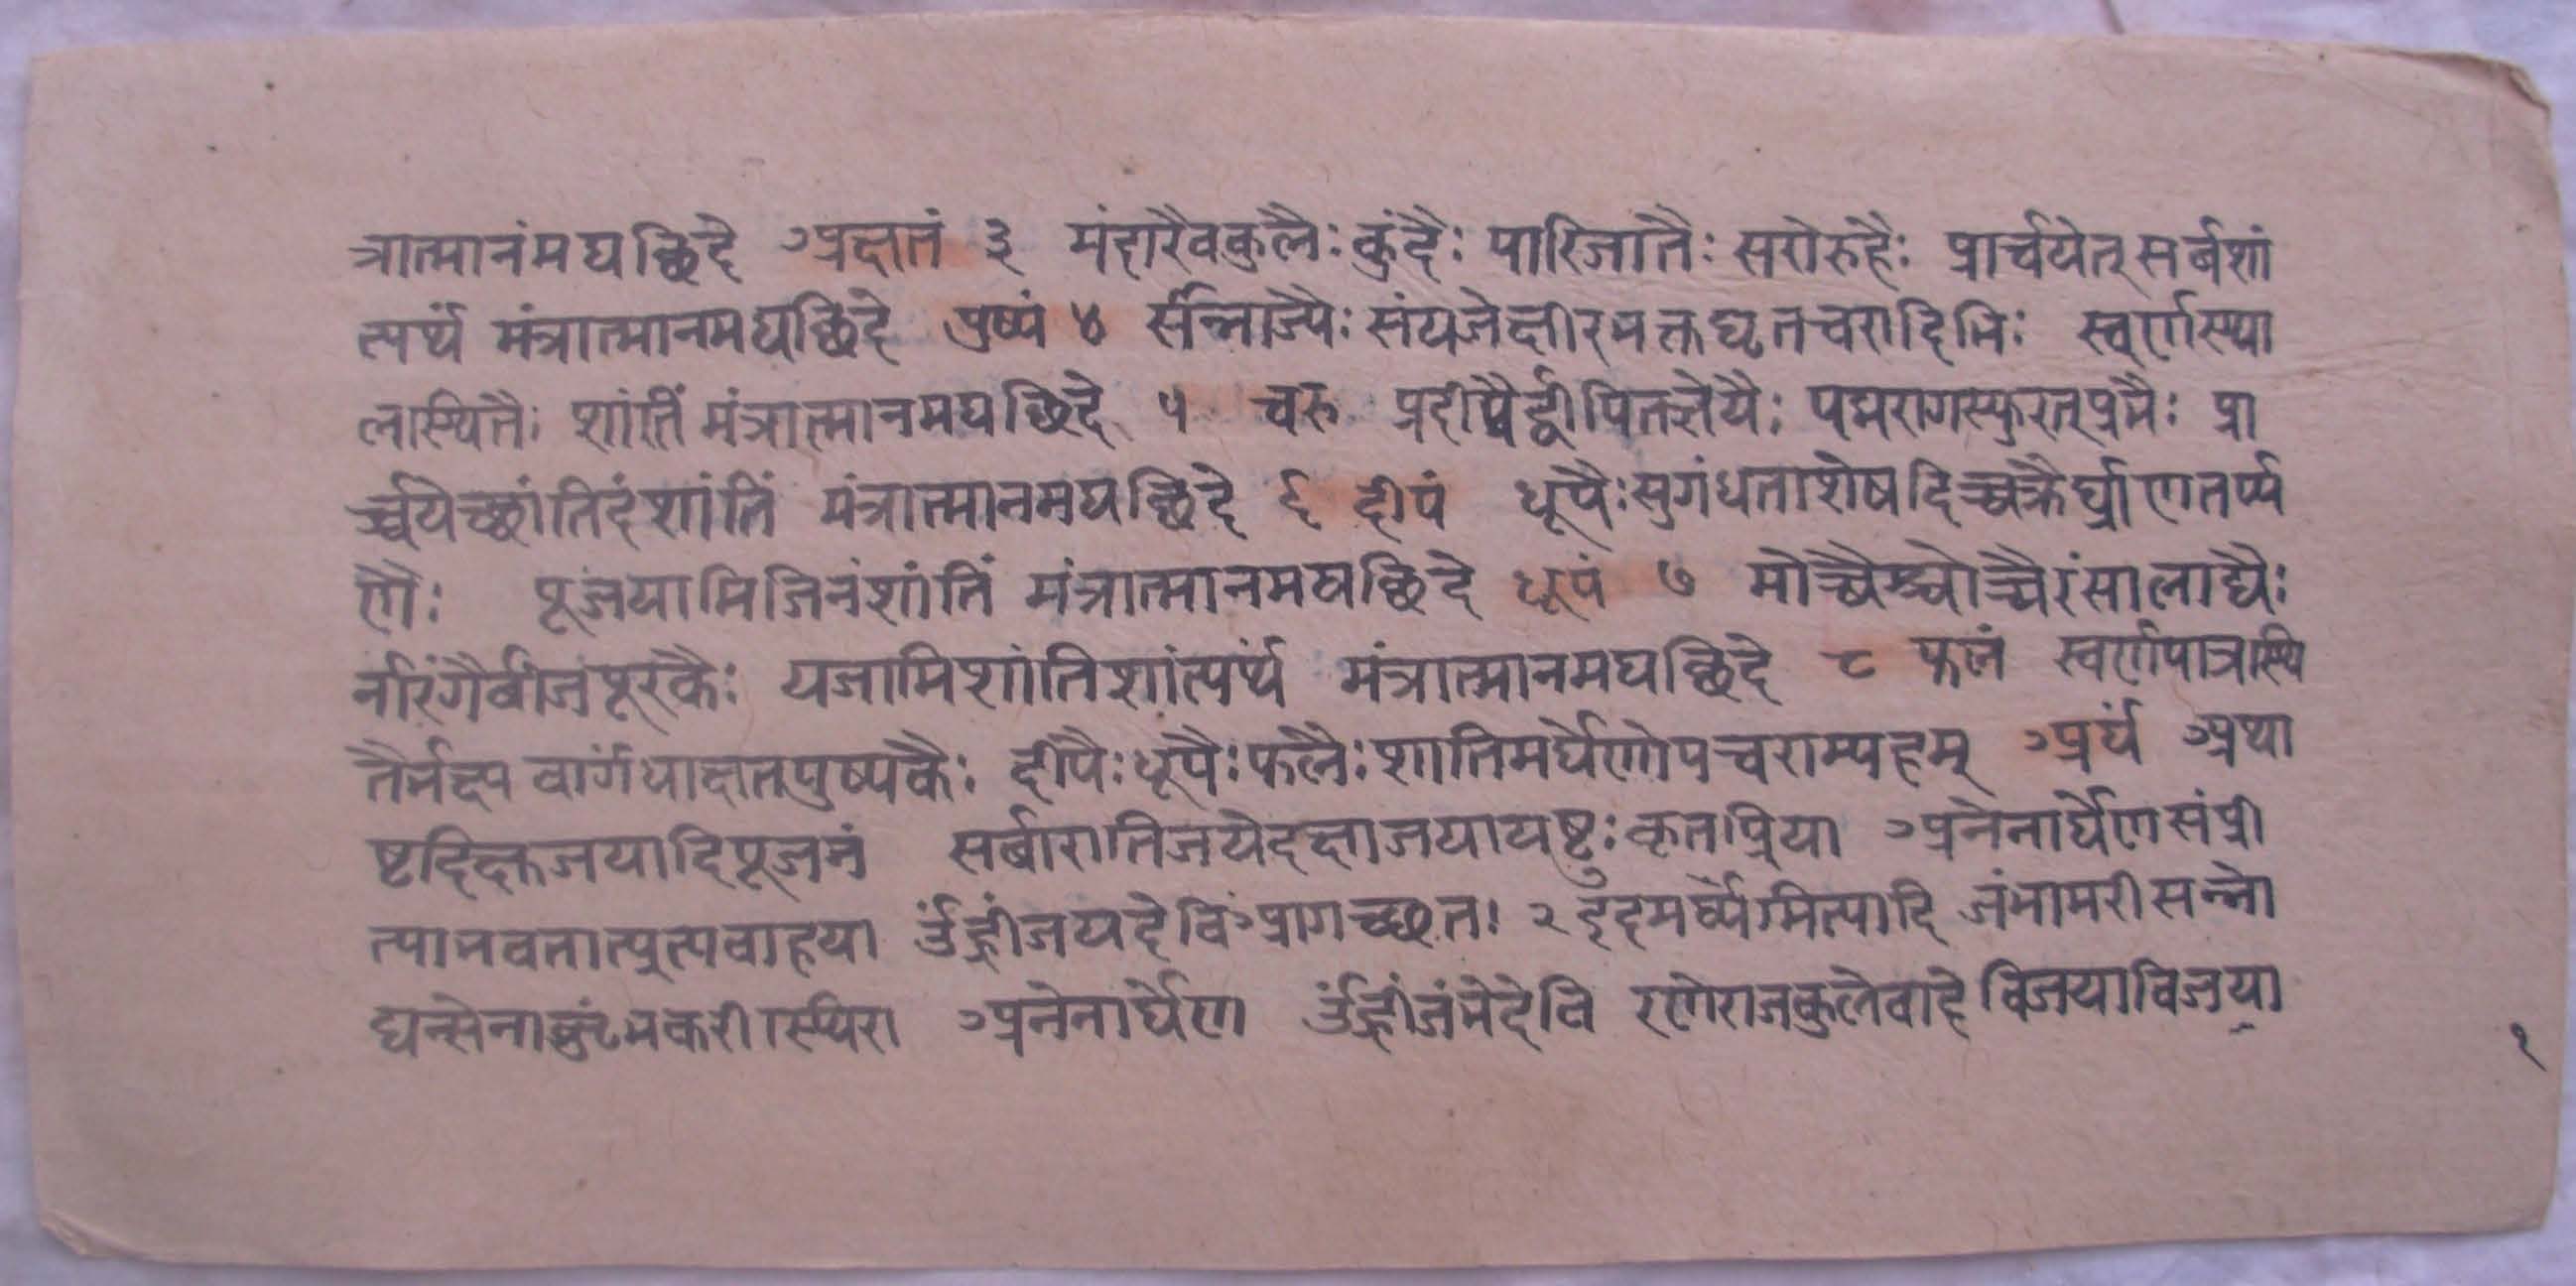 त्रात्मानंमघछिदे अक्षतं ३ मंदारैवकुलैः कुंदैः पारिजातैः सरोरुहैः प्रार्चयेत् सर्बशां
त्यर्थं मंत्रात्मानमघछिदे पुष्पं ४ संयजेक्षीरभक्तघृतचरादिभिः स्वर्णस्था
लास्थितैः शांतिं मंत्रात्मानमघछिदे ५ चरु पद्मरागस्फुरत्प्रभैः प्रा
र्च्चयेच्छांतिदंशांतिं मंत्रात्मानमघछिदे ६ दीपं धूपैःसुगंधताशेषदिच्चक्रैर्घ्राणतर्प्प
णैः पूजयामिजिनंशांतिं मंत्रात्मानमघछिदे धूपं ७ मोच्चैश्चोच्चैरंसालाद्यैः
र्नारंगैर्वीजपूरकैः यजामिशांतिशांत्यर्थं मंत्रात्मानमघछिदे ८ फलं स्वर्णपात्रस्थि
वार्गंधाक्षतपुष्पकैः दीपैःधूपैःफलैःशातिमर्घेणोपचराम्यहम् अर्घं अथा
ष्टदिक्तजयादिपूजनं सर्बारातिजयेदक्षाजयायष्टुःकृतप्रिया अनेनार्घेणसंप्री
त्याभवतात्प्रत्यवाहया ॐह्रींजयदेविंआगच्छतः २ इदमर्घ्यमित्यादि जंभामरीसन्नो
अनेनार्घेण ॐह्रींजंभेदेवि रणेराजकुलेवाहे विजयाविजया
१